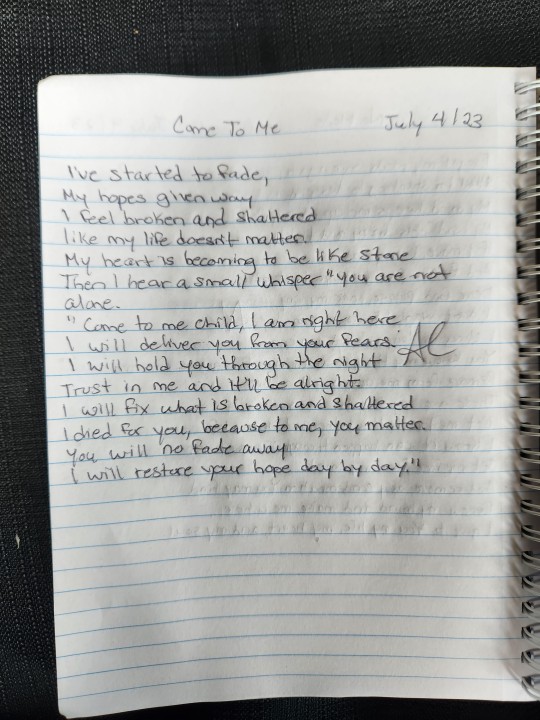 Come To Me
July 4/23
I've started to fade,
My hopes given way
I feel broken and shattered
like my life doesn't matter.
My heart is becoming to be like stone
Then I hear a small whisper "you are not
alone.
"Come to me child, I am right here
I will deliver you from your fears.
I will hold you through the night
Trust in me and it'll be alright.
I will fix what is broken and shattered
I died for you, because to me, you matter.
You will no fade away
I will restore your hope day by day."
AL